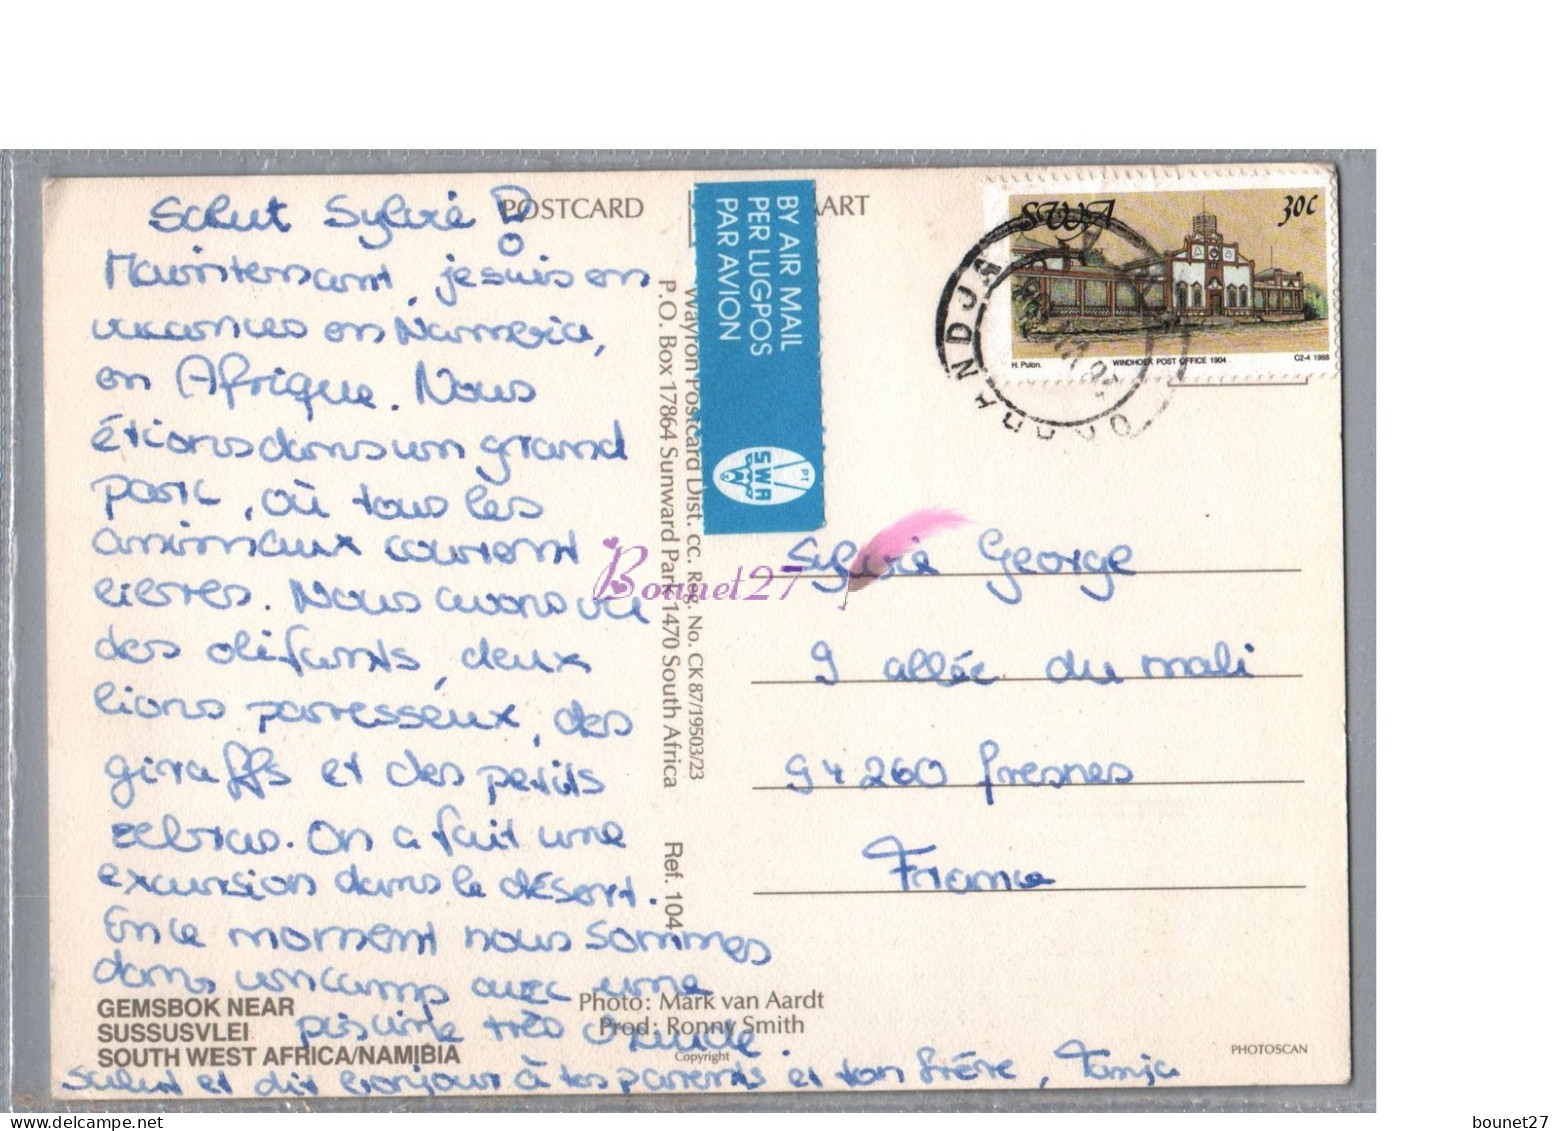 POSTCARD
AART
Salut Sylvie !
Maintenant, je suis en
vacances en Namibia,
en Afrique. Nous
étions dans un grand
parc, où tous les
animaux courent
libres. Nous avons vu
des olifants, deux
lions parresseux, des
giraffs et des petits
zebras. On a fait une
excursion dans le désert.
En ce moment nous sommes
dans un camp avec une
piscine très
Salut et dit bonjour à tes parents et ton frère, Tanja
GEMSBOK NEAR
SUSSUSVLEI
SOUTH WEST AFRICA/NAMIBIA
Photo: Mark van Aardt
Prod: Ronny Smith
Copyright
Wayron Postcard Dist. cc. Reg. No. CK 87/19503/23
P.O. Box 17864 Sunward Park 1470 South Africa
Ref. 104
BY AIR MAIL
PER LUGPOS
PAR AVION
SWA
PT
SWA
30c
H. Pulon.
WINDHOEK POST OFFICE 1904
C2-4 1988
OKAHANDJA
Sylvie George
9 allée du mali
94260 fresnes
France
PHOTOSCAN
Bounet27
bounet27